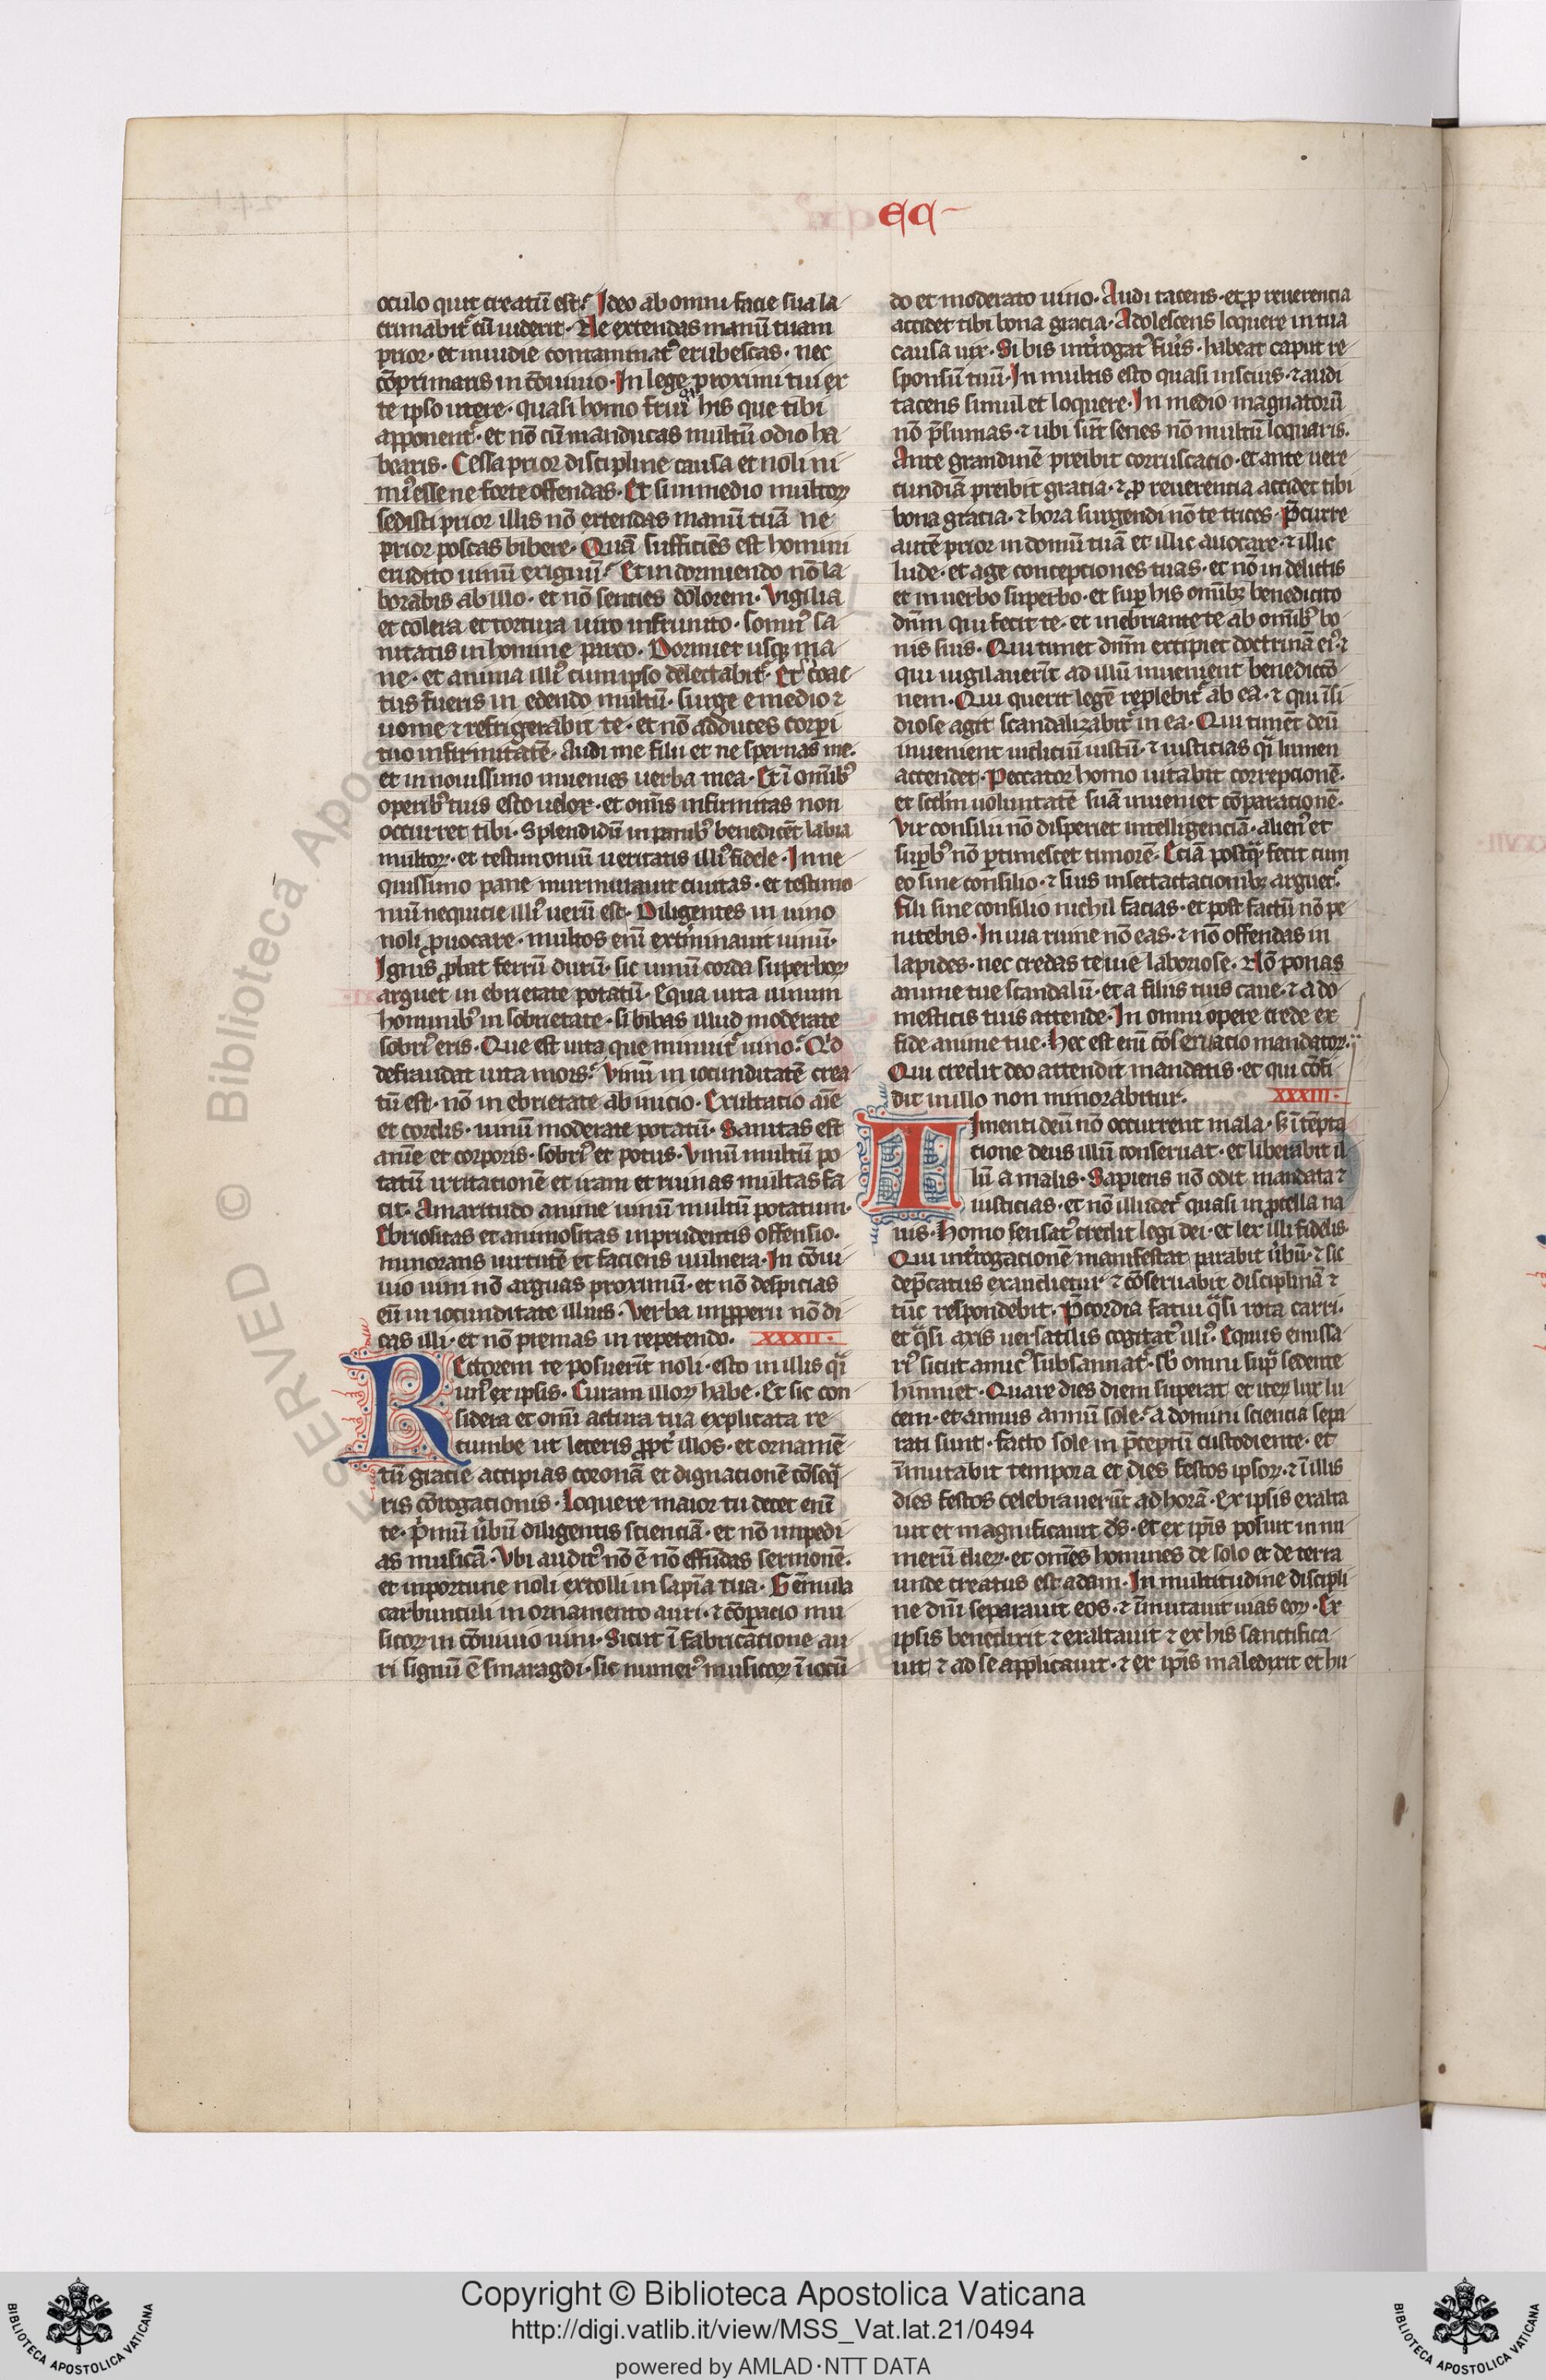 EC
oculo quit creatū est. Ideo ab omni facie sua la
crimabit᷑ cū uiderit. Ne extendas manū tuam
prior. et inuidie contaminatꝰ erubescas. nec
cōprimaris in cōuiuio. In lege proximi tui ex
te ipso
apponent᷑. et nō cū manducas multū odio ha
bearis. Cessa prior discipline causa et noli ni
miꝰ esse ne forte offendas. Et si in medio multoꝝ
sedisti prior illis nō extendas manū tuā ne
prior poscas bibere. Quā sufficiēs est homini
erudito uinū exiguū. Et in dormiendo nō la
borabis ab illo. et nō senties dolorem. Vigilia
et colera et tortura uiro infrunito. somnꝰ sa
nitatis in homine parco. Dormiet usqꝫ ma
ne. et anima illiꝰ cum ipso delectabit᷑. Et si coac
tus fueris in edendo multū. surge e medio ⁊
uome ⁊ refrigerabit te. et nō adduces corpri
tuo infirmitatē. Audi me fili et ne spernas me.
et in nouissimo inuenies uerba mea. Et ī omībꝰ
operibꝰ tuis esto uelox. et omīs infirmitas non
occurret tibi. Splendidū in panibꝰ benedicēt labia
multoꝝ. et testimoniū ueritatis illiꝰ fidele. In ne
quissimo pane murmurauit ciuitas. et testimo
niū nequicie illiꝰ uerū est. Diligentes in uino
noli ꝓuocare. multos enī extīminauit uinū.
Ignis ꝓbat ferrū durū. sic uinū corda superboꝝ
arguet in ebrietate potatū. Equa uita uinum
hominibꝰ in sobrietate. si bibas illud moderate
sobriꝰ eris. Que est uita que minuit᷑ uino. Qͥd
defraudat uita mors. Vinū in iocunditatē crea
tū est. nō in ebrietate ab inicio. Exultacio aīe
et cordis. uinū moderate potatū. Sanitas est
anīe et corporis. sobriꝰ et potus. Vinū multū po
tatū irritationē et iram et ruinas multas fa
cit. Amaritudo anime uinū multū potatum.
Ebriositas et animositas inprudentis offensio.
minorans uirtutē et faciens uulnera. In cōui
uio uini nō arguas proximū. et nō despicias
eū in iocunditate illius. Verba inꝓperii nō di
cas illi. et nō premas in repetendo. XXXII.
REctorem te posuerūt noli. esto in illis q̄i
unꝰ ex ipsis. Curam illoꝝ habe. Et sic con
sidera et omī actura tua explicata re
cumbe ut leteris ꝓpt̄ illos. et ornamē
tū gracie accipias coronā et dignacionē cōseq̄
ris cōrogacionis. Loquere maior tu decet enī
te. pͥmū ūbū diligentis scienciā. et nō impedi
as musicā. Vbi auditꝰ nō ē nō effūdas sermonē.
et inportune noli extolli in sapīa tua. Gēmula
carbunculi in ornamento auri. ⁊ cōꝑacio mu
sicoꝝ in cōuiuio uini. Sicut ī fabricatione au
ri signū ē smaragdi. sic numerꝰ musicoꝝ ī iocū
do et moderato uino. Audi tacens. et ꝓ reuerencia
accidet tibi bona gracia. Adolescens loquere in tua
causa uix. Si bis intͥrogatꝰ fuis. habeat caput re
sponsū tuū. In multis esto quasi inscius. ⁊ audi
tacens simul et loquere. In medio magnatorū
nō p̄sumas. ⁊ ubi sūt senes nō multū loquaris.
Ante grandinē preibit corruscacio. et ante uere
cundiā preibit gratia. ⁊ ꝓ reuerencia accidet tibi
bona gracia. ⁊ hora surgendi nō te trices. P̄curre
autē prior in domū tuā et illic auocare. ⁊ illic
lude. et age conceptiones tuas. et nō in delictis
et in uerbo superbo. et suꝑ his omībꝫ benedicito
dnm qui fecit te. et inebriante te ab omībꝰ bo
nis suis. Qui timet dnm excipiet doctrinā eiꝰ. ⁊
qui uigilauerīt ad illū inuenient benedictō
nem. Qui querit legē replebit᷑ ab ea. ⁊ qui īsi
diose agit scandalizabit᷑ in ea. Qui timēt deū
inuenient iudiciū iustū. ⁊ iusticias q̄i lumen
accendet. Peccator homo uitabit correpcionē.
et scdm uoluntatē suā inueniet cōparacionē.
Vir consilii nō disperiet intelligenciā. alienꝰ et
suꝑbꝰ nō ꝑtimescet timorē. Eciā postq̄ fecit cum
eo sine consilio. ⁊ suis insectactacionibꝫ arguet᷑.
Fili sine consilio nichil facias. et post factū nō pe
nitebis. In uia ruine nō eas. ⁊ nō offendas in
lapides. nec credas te uie laboriose. Nō ponas
anime tue scandalū. et a filiis tuis caue. ⁊ a do
mesticis tuis attende. In omni opere crede ex
fide anime tue. Hec est enī cōseruacio mandatoꝝ.
Qui credit deo attendit mandatis. et qui cōfi
dit in illo non minorabitur. XXXIII.
TImenti deū nō occurrent mala. sꝫ ī tēpta
cione deus illū conseruat. et liberabit il
lū a malis. Sapiens nō odit mandata ⁊
iusticias. et nō illidet᷑ quasi in ꝓcella na
uis. Homo sensatꝰ credit legi dei. et lex illi fidelis.
Qui intͥrogacionē manifestat parabit ūbū. ⁊ sic
dep̄catus exaudietur ⁊ cōseruabit disciplinā ⁊
tūc respondebit. P̄cordia fatui q̄si rota carri.
et q̄si axis uersatilis cogitatꝰ illiꝰ. Equus emissa
riꝰ sicut amicꝰ subsannat᷑. sb̄ omni supͣ sedente
hinniet. Quare dies diem superat et iteꝝ lux lu
cem. et annus annū sole. a domini sciencia sepa
rati sunt. facto sole in p̄ceptū custodiente. et
īmutabit tempora et dies festos ipsoꝝ. ⁊ ī illis
dies festos celebrauerūt ad horā. Ex ipsis exalta
uit et magnificauit ds̄. et ex ipīs posuit in nu
merū dieꝝ. et omēs homines de solo et de terra
unde creatus est adam. In multitudine discipli
ne dnī separauit eos. ⁊ īmutauit uias eoꝝ. Ex
ipsis benedixit ⁊ exaltauit ⁊ ex his sanctifica
uit ⁊ ad se applicauit. ⁊ ex ipīs maledixit et hu
Copyright © Biblioteca Apostolica Vaticana
http://digi.vatlib.it/view/MSS_Vat.lat.21/0494
powered by AMLAD·NTT DATA
BIBLIOTECA APOSTOLICA VATICANA
BIBLIOTECA APOSTOLICA VATICANA